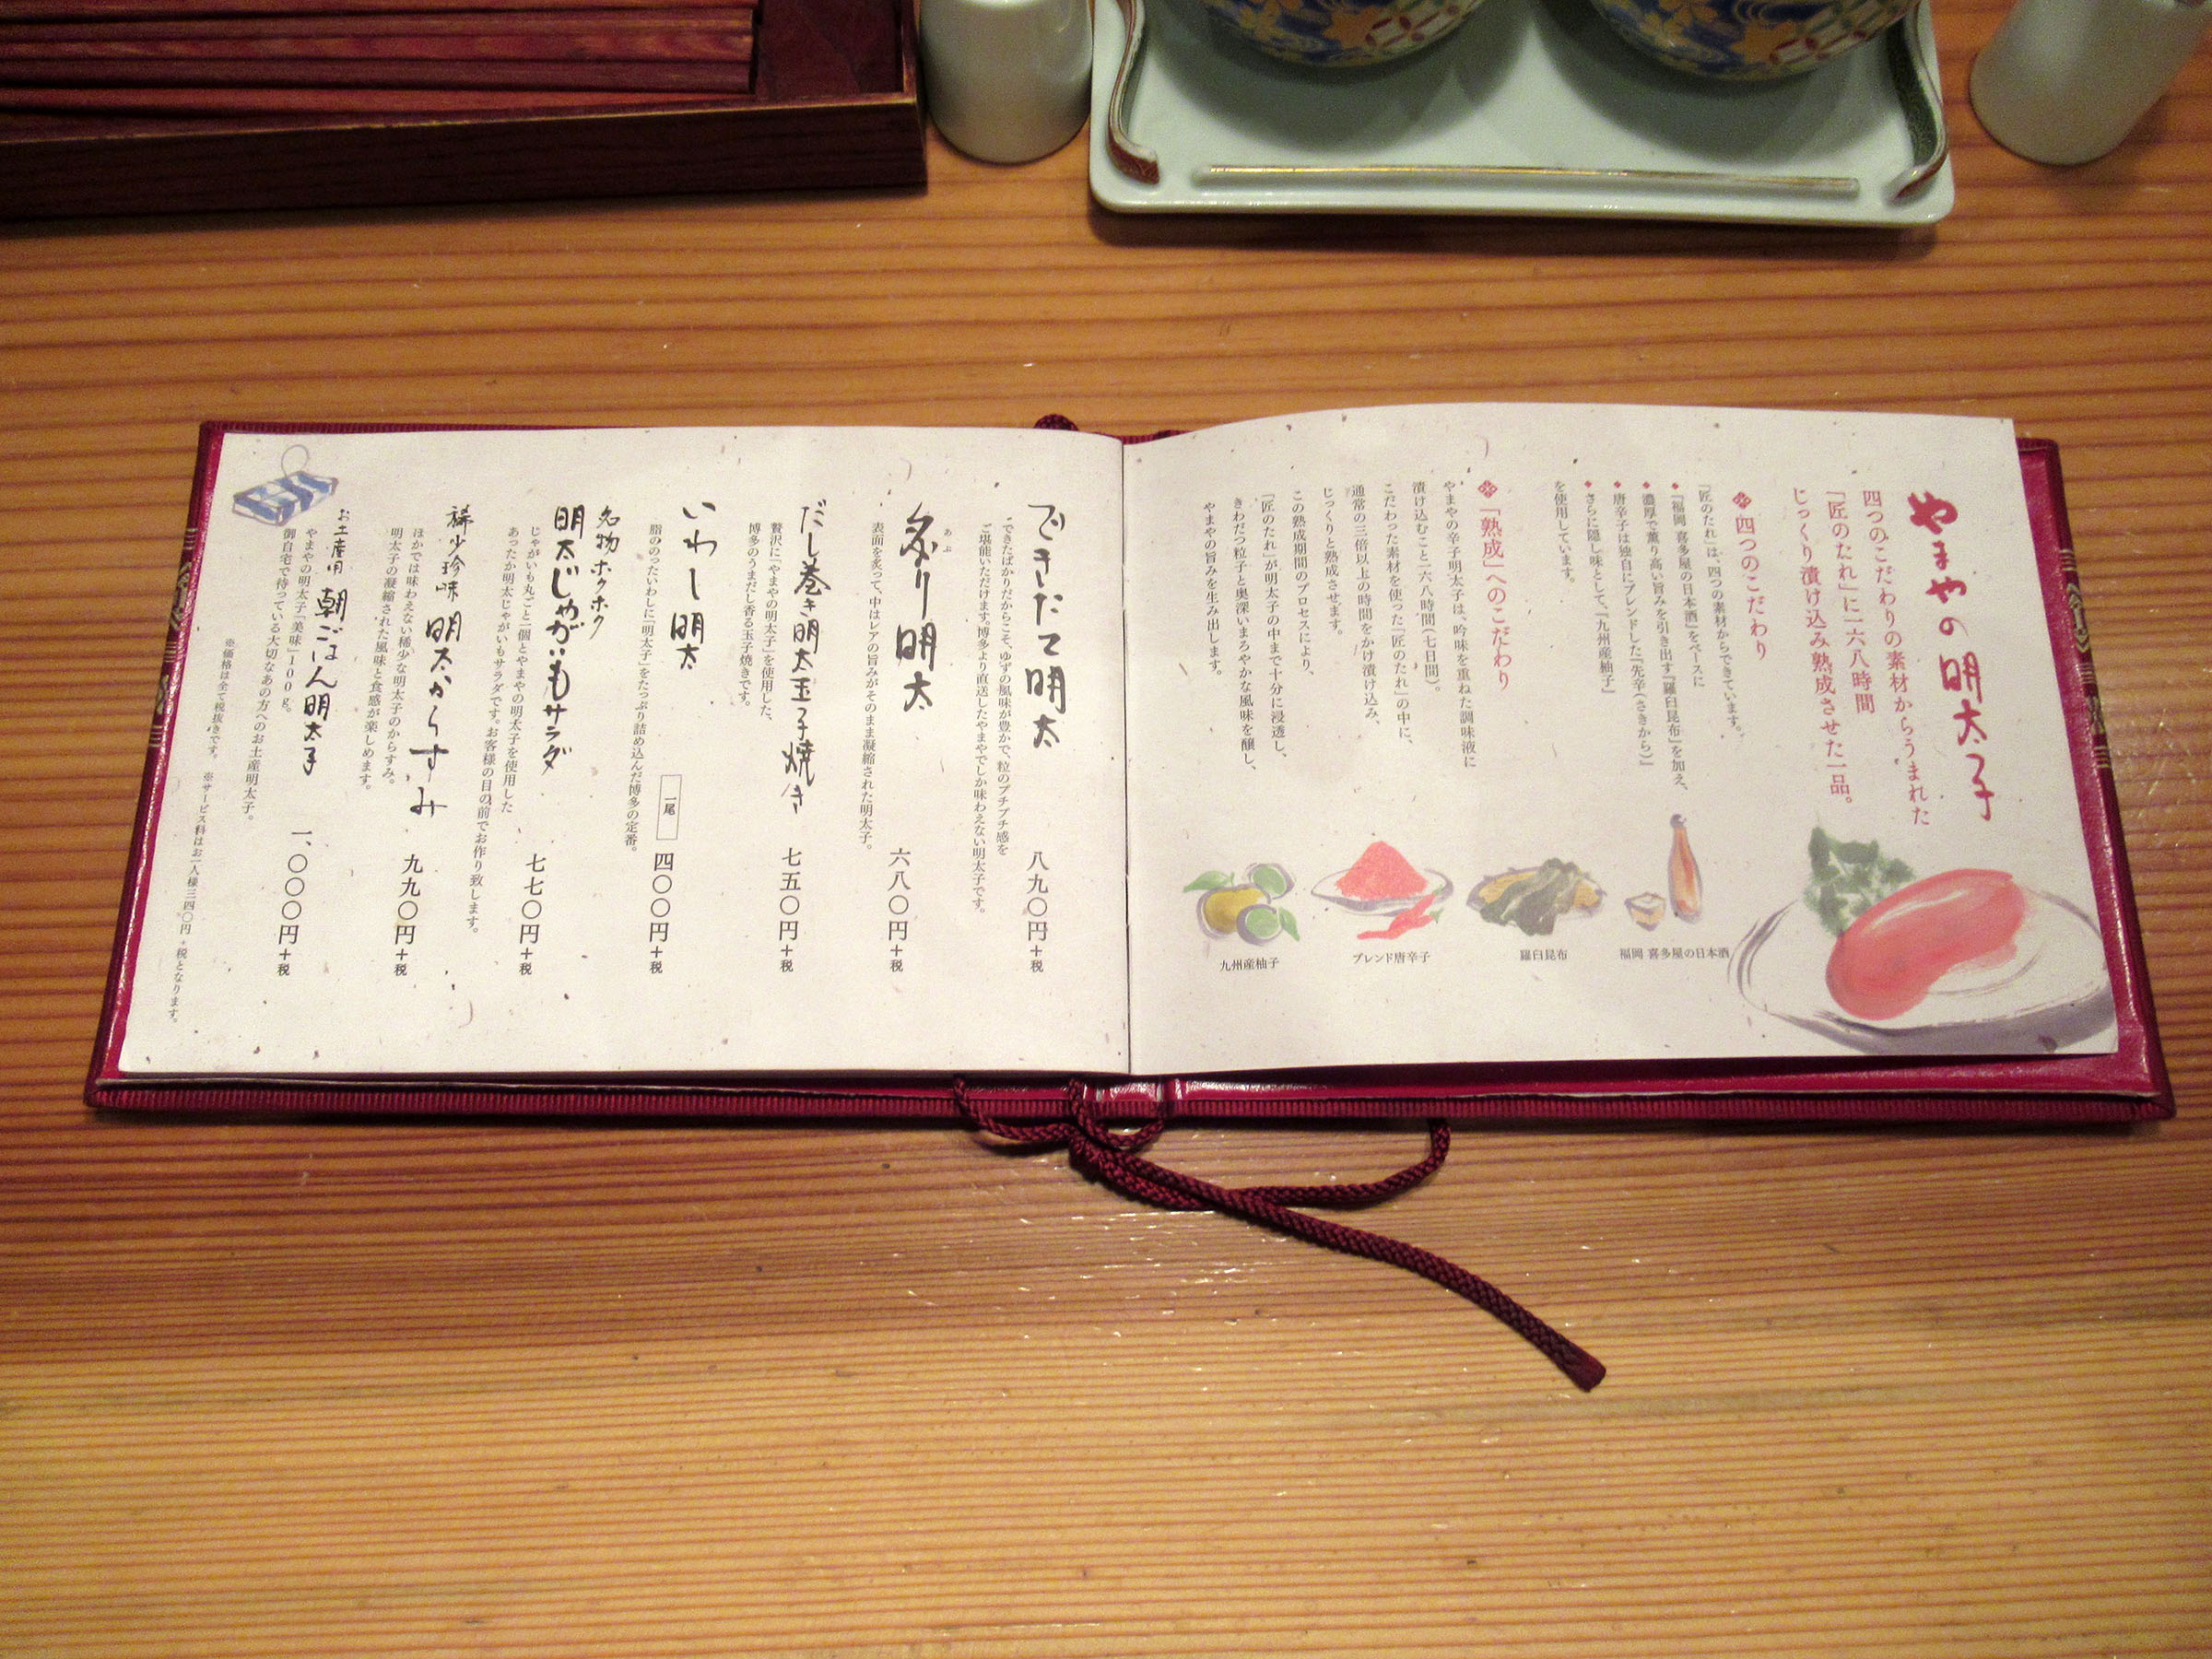 やまやの明太子
四つのこだわりの素材からうまれた
「匠のたれ」に一六八時間
じっくり漬け込み熟成させた一品。
四つのこだわり
「匠のたれ」は、四つの素材からできています。
『福岡 喜多屋の日本酒』をベースに
濃厚で薫り高い旨みを引き出す『羅臼昆布』を加え、
唐辛子は独自にブレンドした『先辛(さきから)』
さらに隠し味として、『九州産柚子』
を使用しています。
「熟成」へのこだわり
やまやの辛子明太子は、吟味を重ねた調味液に
漬け込むこと一六八時間(七日間)。
こだわった素材を使った「匠のたれ」の中に、
通常の三倍以上の時間をかけ漬け込み、
じっくりと熟成させます。
この熟成期間のプロセスにより、
「匠のたれ」が明太子の中まで十分に浸透し、
きわだつ粒子と奥深いまろやかな風味を醸し、
やまやの旨みを生み出します。
福岡 喜多屋の日本酒
羅臼昆布
ブレンド唐辛子
九州産柚子
できたて明太 八九〇円+税
できたばかりだからこそ、ゆずの風味が豊かで、粒のプチプチ感を
ご堪能いただけます。博多より直送したやまやでしか味わえない明太子です。
あぶ
炙り明太 六八〇円+税
表面を炙って、中はレアの旨みがそのまま凝縮された明太子。
だし巻き明太玉子焼き 七五〇円+税
贅沢に「やまやの明太子」を使用した、
博多のうまだし香る玉子焼きです。
いわし明太 一尾 四〇〇円+税
脂ののったいわしに「明太子」をたっぷり詰め込んだ博多の定番。
名物ホクホク
明太じゃがいもサラダ 七七〇円+税
じゃがいも丸ごと一個とやまやの明太子を使用した
あったか明太じゃがいもサラダです。お客様の目の前でお作り致します。
稀少珍味 明太からすみ 九九〇円+税
ほかでは味わえない稀少な明太子のからすみ。
明太子の凝縮された風味と食感が楽しめます。
お土産用 朝ごはん明太子 一、〇〇〇円+税
やまやの明太子「美味」100g。
御自宅で待っている大切なあの方へのお土産明太子。
※価格は全て税抜きです。 ※サービス料はお一人様三四〇円+税となります。